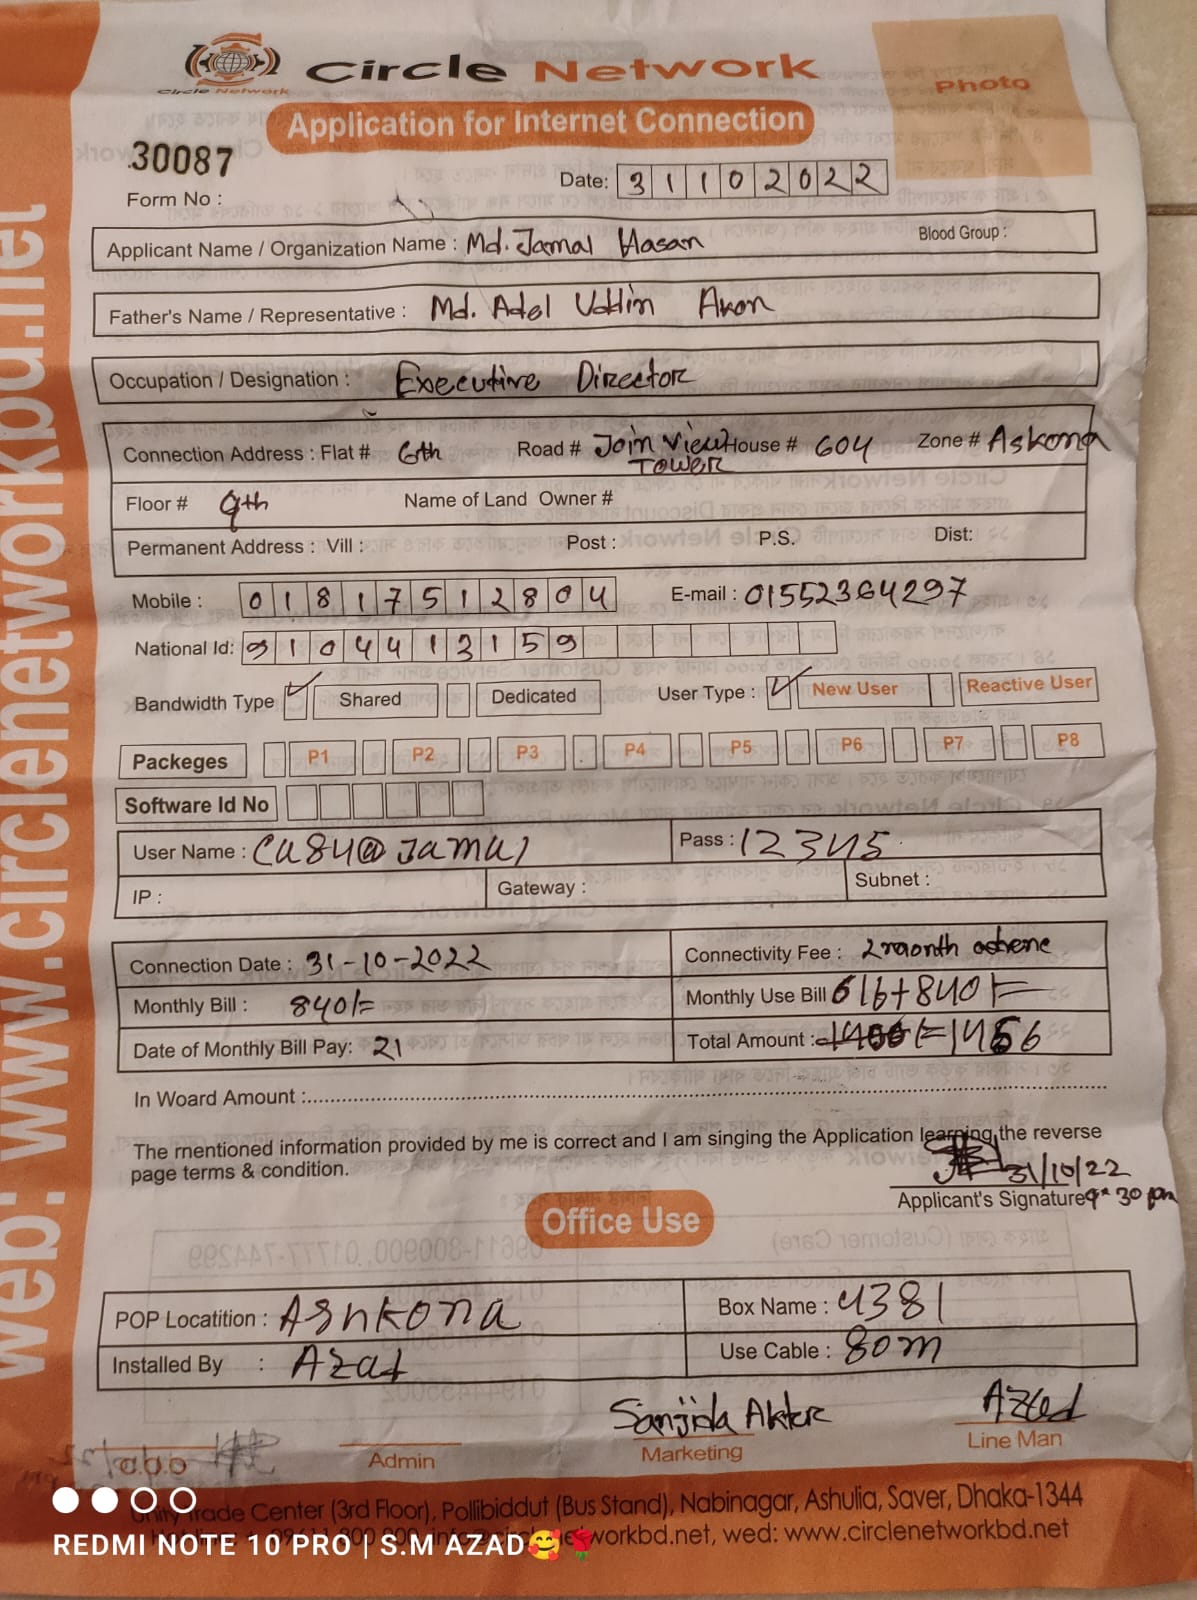 Circle Network
Circle Network
Photo
Application for Internet Connection
30087
Form No :
Date: 31102022
Applicant Name / Organization Name : Md. Jamal Hasan Blood Group :
Father's Name / Representative : Md. Adel Uddin Akon
Occupation / Designation : Executive Director
Connection Address : Flat # 6th Road # Join View Tower House # 604 Zone # Askona
Floor # 9th Name of Land Owner #
Permanent Address : Vill : Post : P.S. Dist:
Mobile : 01817512804 E-mail : 01552364297
National Id: 9104413159
Bandwidth Type ✓ Shared Dedicated User Type : ✓ New User Reactive User
Packeges P1 P2 P3 P4 P5 P6 P7 P8
Software Id No
User Name : Pass : 12345
IP : Gateway : Subnet :
Connection Date : 31-10-2022 Connectivity Fee : 2 month
Monthly Bill : 840/= Monthly Use Bill 616+840/=
Date of Monthly Bill Pay: 21 Total Amount : 1456
In Woard Amount :
The mentioned information provided by me is correct and I am singing the Application learning the reverse
page terms & condition.
31/10/22
Applicant's Signature 9:30 pm
Office Use
POP Locatition : Ashkona Box Name : 4381
Installed By : Azat Use Cable : 80m
Sanjida Akter Azad
Admin Marketing Line Man
Unity Trade Center (3rd Floor), Pollibiddut (Bus Stand), Nabinagar, Ashulia, Saver, Dhaka-1344
networkbd.net, wed: www.circlenetworkbd.net
REDMI NOTE 10 PRO | S.M AZAD🥰🌹
web: www.circlenetworkbd.net